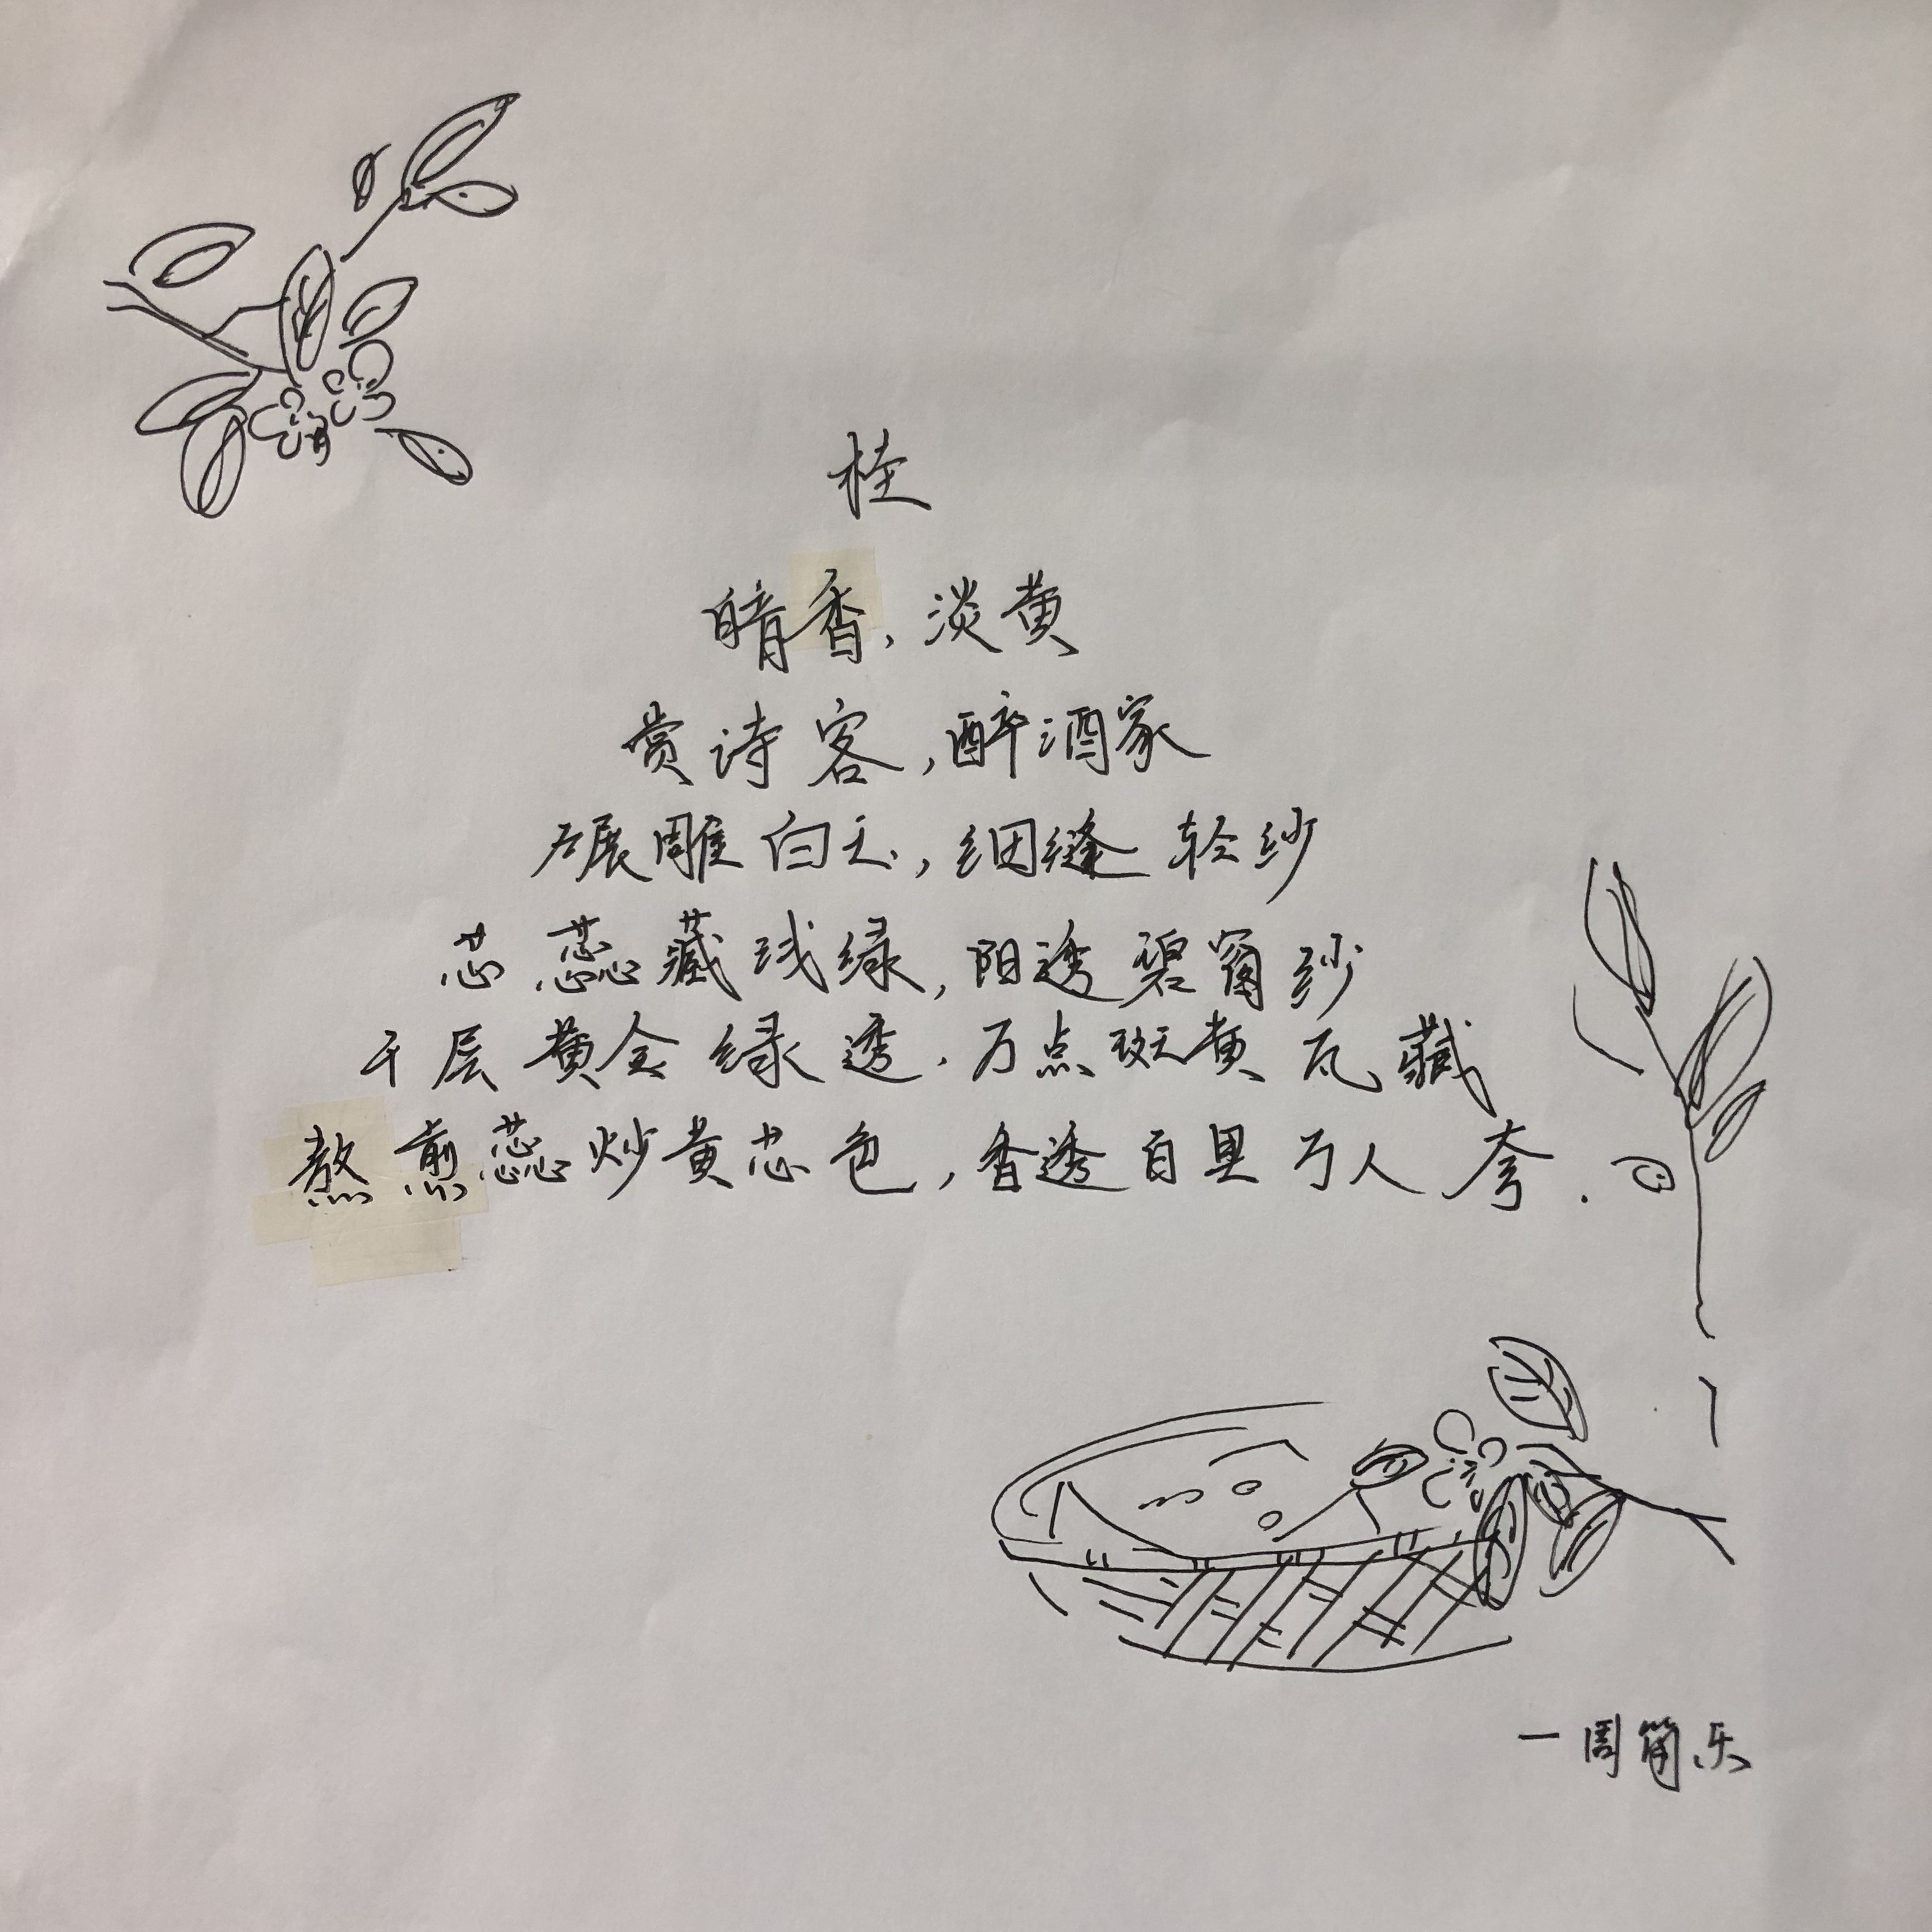 桂
暗香，淡黄
赏诗客，醉酒家
碾雕白玉，细缝轻纱
芯蕊藏浅绿，阳透碧窗纱
千层黄金绿透，万点斑黄瓦藏
熬煎蕊炒黄芯色，香透百里万人夸．
一周简乐